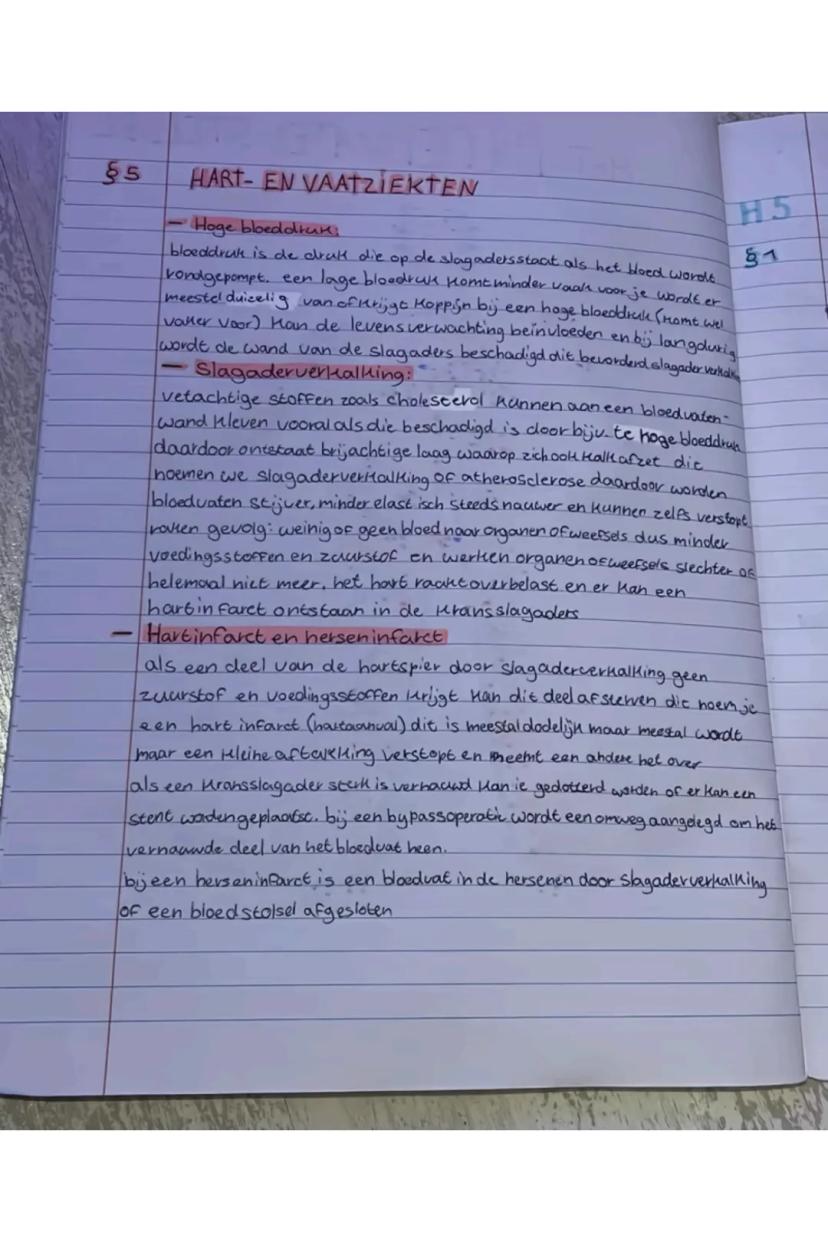 §5 HART- EN VAATZIEKTEN
- Hoge bloeddruk:
bloeddruk is de druk die op de slagaders staat als het bloed wordt
rondgepompt. een lage bloedruk komt minder vaak voor je wordt er
meestel duizelig van of krijgt koppijn bij een hoge bloeddruk (komt wel
vaker voor) kan de levensverwachting beïnvloeden en bij langdurig
wordt de wand van de slagaders beschadigd dit bevorderd slagader verkalking
- Slagaderverkalking:
vetachtige stoffen zoals cholesterol kunnen aan een bloedvaten-
wand kleven vooral als die beschadigd is door bijv. te hoge bloeddruk
daardoor ontstaat brijachtige laag waarop zich ook kalk afzet dit
noemen we slagaderverkalking of atherosclerose daardoor worden
bloedvaten stijver, minder elastisch steeds nauwer en kunnen zelfs verstopt
raken gevolg: weinig of geen bloed naar organen of weefsels dus minder
voedingsstoffen en zuurstof en werken organen of weefsels slechter of
helemaal niet meer. het hart raakt overbelast en er kan een
hartinfarct ontstaan in de kransslagaders
- Hartinfarct en herseninfarct
als een deel van de hartspier door slagaderverkalking geen
zuurstof en voedingsstoffen krijgt kan dit deel afsterven dit noem je
een hart infarct (hartaanval) dit is meestal dodelijk maar meestal wordt
maar een kleine aftakking verstopt en neemt een andere het over
als een kransslagader sterk is vernauwd kan ie gedotterd worden of er kan een
stent worden geplaatst. bij een bypassoperatie wordt een omweg aangelegd om het
vernauwde deel van het bloedvat heen.
bij een herseninfarct is een bloedvat in de hersenen door slagaderverkalking
of een bloedstolsel afgesloten
H5
§1